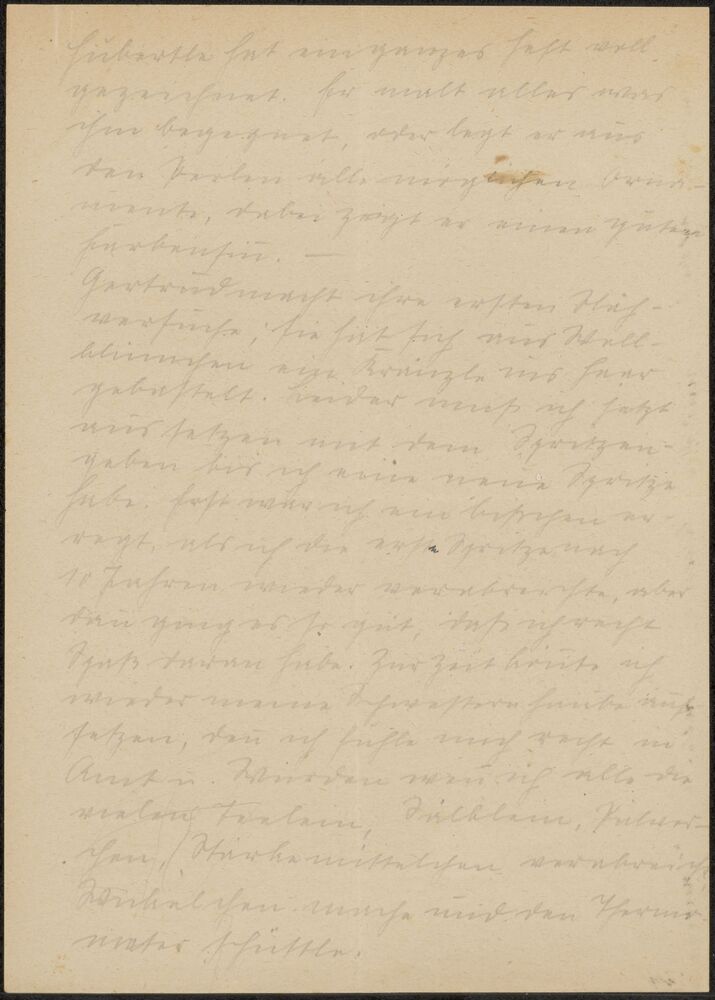 Hubertle hat ein ganzes Heft voll
gezeichnet. Er malt alles was
ihm begegnet, oder legt er aus
den Perlen alle möglichen Orna-
mente, dabei zeigt er einen guten
Farbensinn. —
Gertrud macht ihre ersten Näh-
versuche, sie hat sich aus Woll-
blümchen ein Kränzle ins Haar
gebastelt. Leider muß ich jetzt
aussetzen mit dem Spritzen-
geben bis ich eine neue Spritze
habe. Erst war ich ein bißchen er-
regt, als ich die erste Spritze nach
10 Jahren wieder verabreichte, aber
dann ging es so gut, daß ich recht
Spaß daran habe. Zur Zeit könnte ich
wieder meine Schwesternhaube auf-
setzen, denn ich fühle mich recht in
Amt u. Würden wenn ich alle die
vielen Teelein, Sälblein, Pulver-
chen, Stärkemittelchen verabreiche
Wickelchen mache und den Thermo-
meter schüttle.